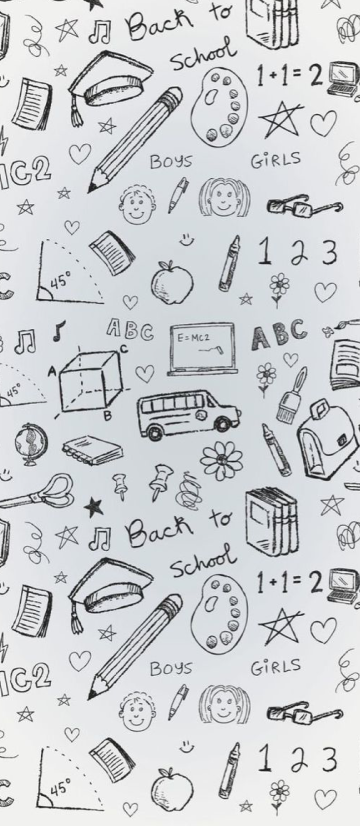 Back to
School
1+1=2
MC2
BOYS GIRLS
45°
1 2 3
ABC
E=MC2
ABC
C
A
45°
B
Back to
School
1+1=2
MC2
BOYS GIRLS
45°
1 2 3